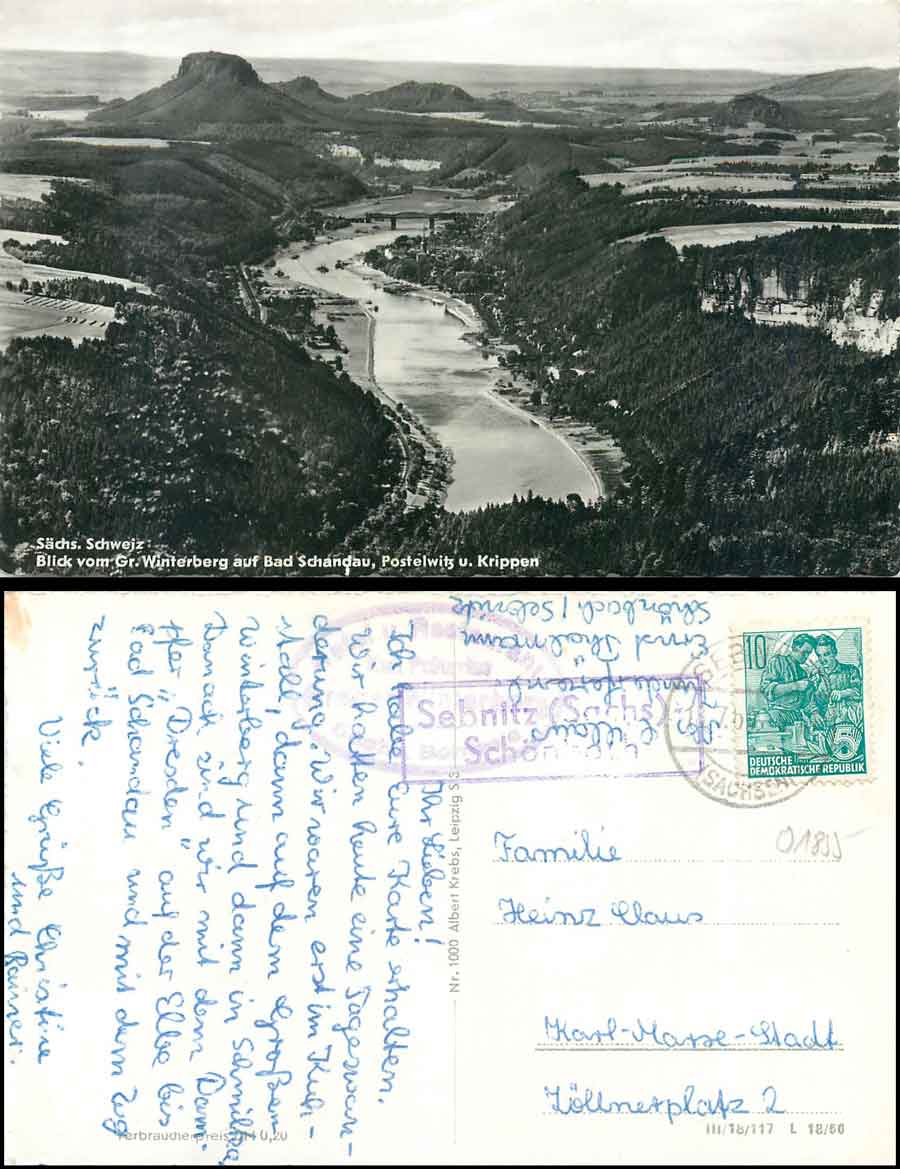 Sächs. Schweiz
Blick vom Gr. Winterberg auf Bad Schandau, Postelwitz u. Krippen
Ihr Lieben!
Ich habe eure Karte erhalten.
Wir hatten heute eine Tageswan-
derung. Wir waren erst im Kuh-
stall, dann auf dem Großen
Winterberg und dann in Schmilka.
Danach sind wir mit dem Dam-
pfer "Dresden" auf der Elbe bis
Bad Schandau und mit dem Zug
zurück.
Viele Grüße Christine
und Rainer.
Claus
Kinderferienl.
Ernst Thälmann
Schönbach / Sebnitz
Sebnitz (Sachs)
Schönbach
SEBNITZ
(SACHSEN)
10
5
DEUTSCHE
DEMOKRATISCHE REPUBLIK
01855
Familie
Heinz Claus
Karl-Marx-Stadt
Zöllnerplatz 2
Nr. 1000 Albert Krebs, Leipzig S 3
Verbraucherpreis DM 0,20
III/18/117 L 18/60